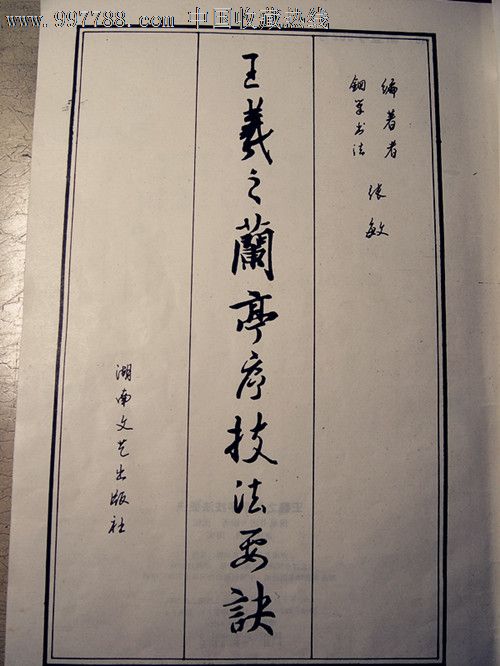 www.997788.com 中国收藏热线
编著者 张敏
钢笔书法
王羲之蘭亭序技法要訣
湖南文艺出版社